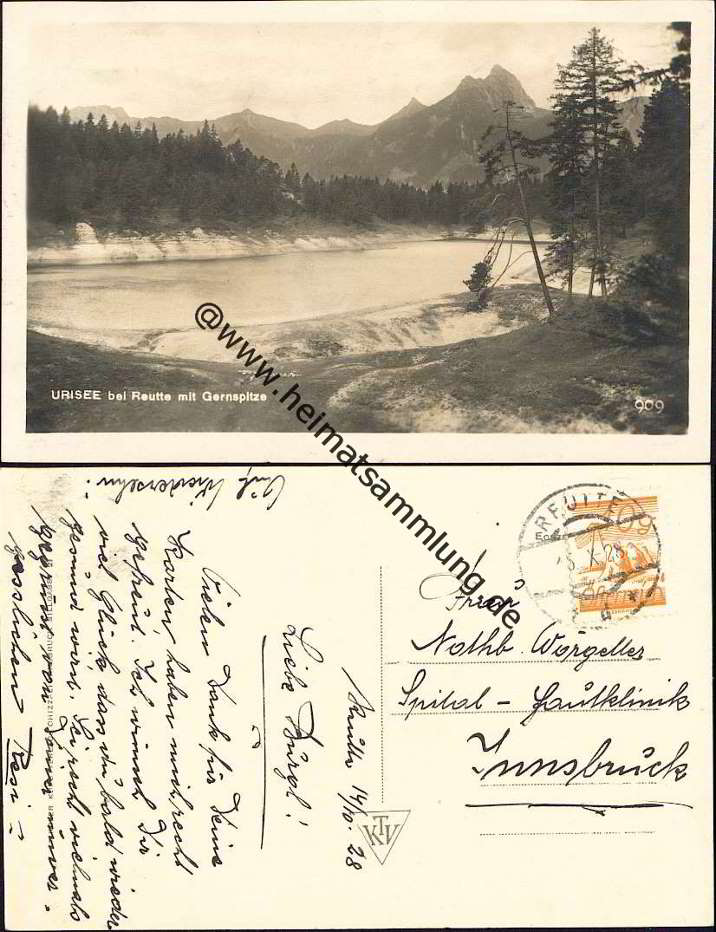 URISEE bei Reutte mit Gernspitze
909
@www.heimatsammlung.de
REUTTE
X.28
60
Reutte 14/10. 28
Liebe Burgl!
Vielen Dank für Deine
Karten, haben mich recht
gefreut. Ich wünsch Dir
viel Glück, dass du bald wieder
gesund wirst. Sei recht vielmals
gegrüßt von Deiner immer
gesslichen Resi
Auf Wiedersehn!
KTV
Frau
Nothb. Wörgeller
Spital - Hautklinik
Innsbruck